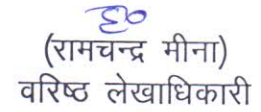 (रामचन्द्र मीना)
वरिष्ठ लेखाधिकारी